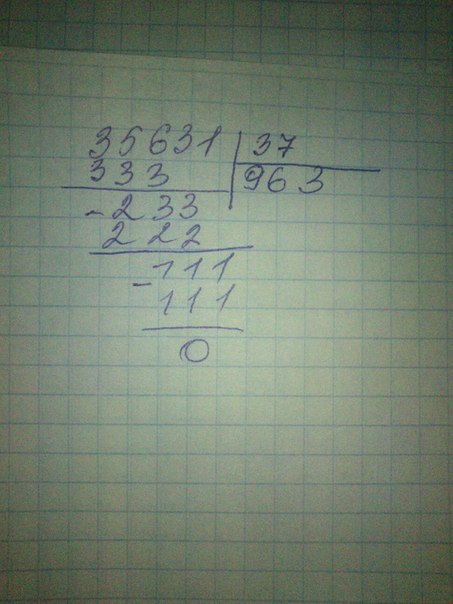 35631 37
333 963
- 233
222
- 111
111
0